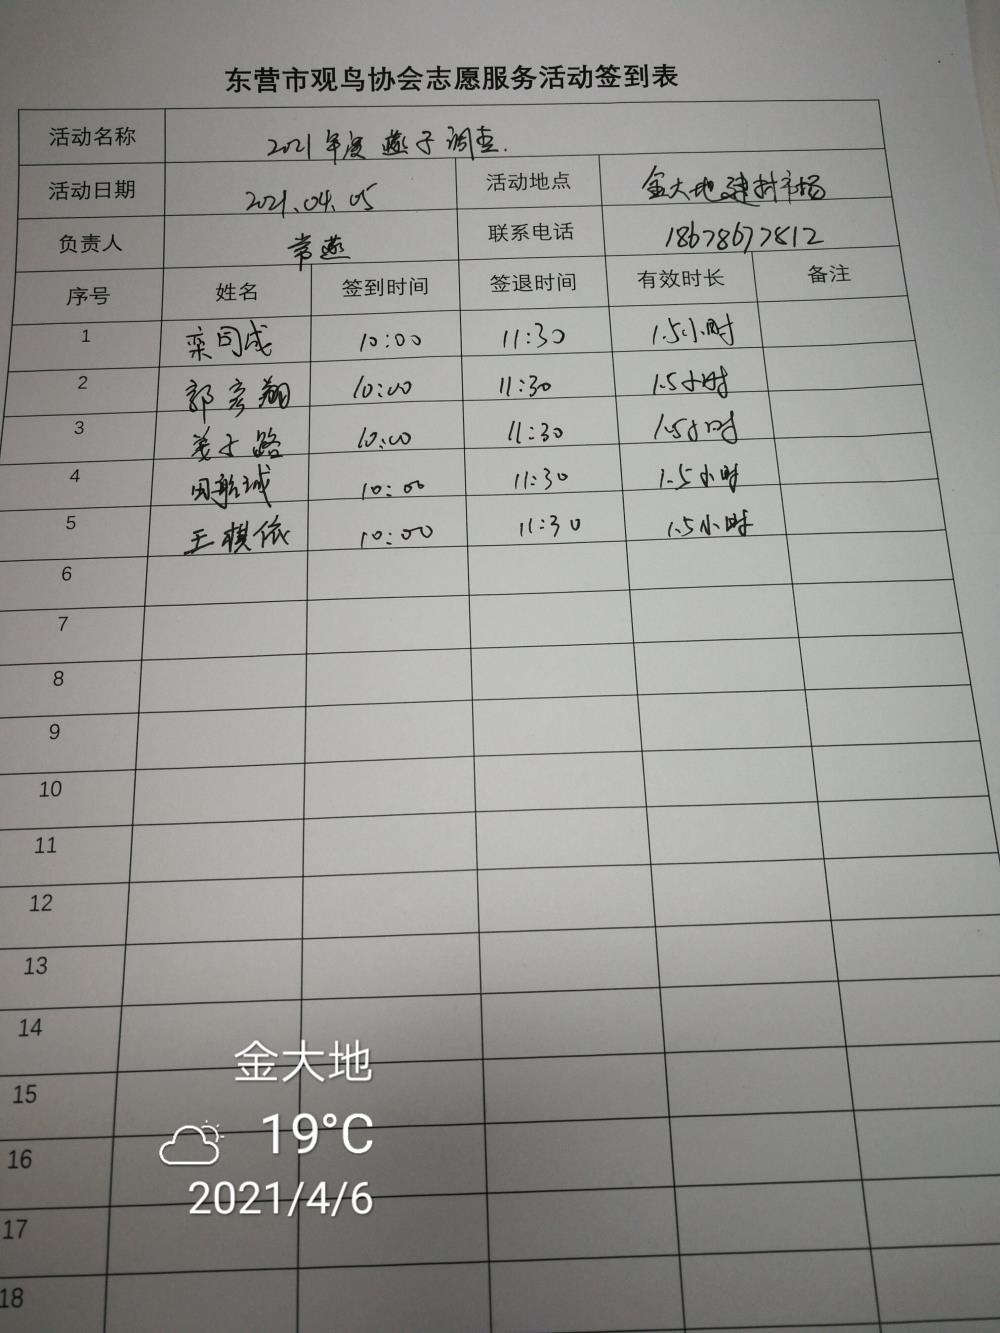 东营市观鸟协会志愿服务活动签到表
活动名称 2021年度燕子调查.
活动日期 2021.04.05 活动地点 金大地建材市场
负责人 常燕 联系电话 18678677812
序号 姓名 签到时间 签退时间 有效时长 备注
1 栾同成 10:00 11:30 1.5小时
2 郭彦翔 10:00 11:30 1.5小时
3 姜子路 10:00 11:30 1.5小时
4 田航诚 10:00 11:30 1.5小时
5 王棋依 10:00 11:30 1.5小时
6
7
8
9
10
11
12
13
14
15
16
17
18
金大地
19°C
2021/4/6